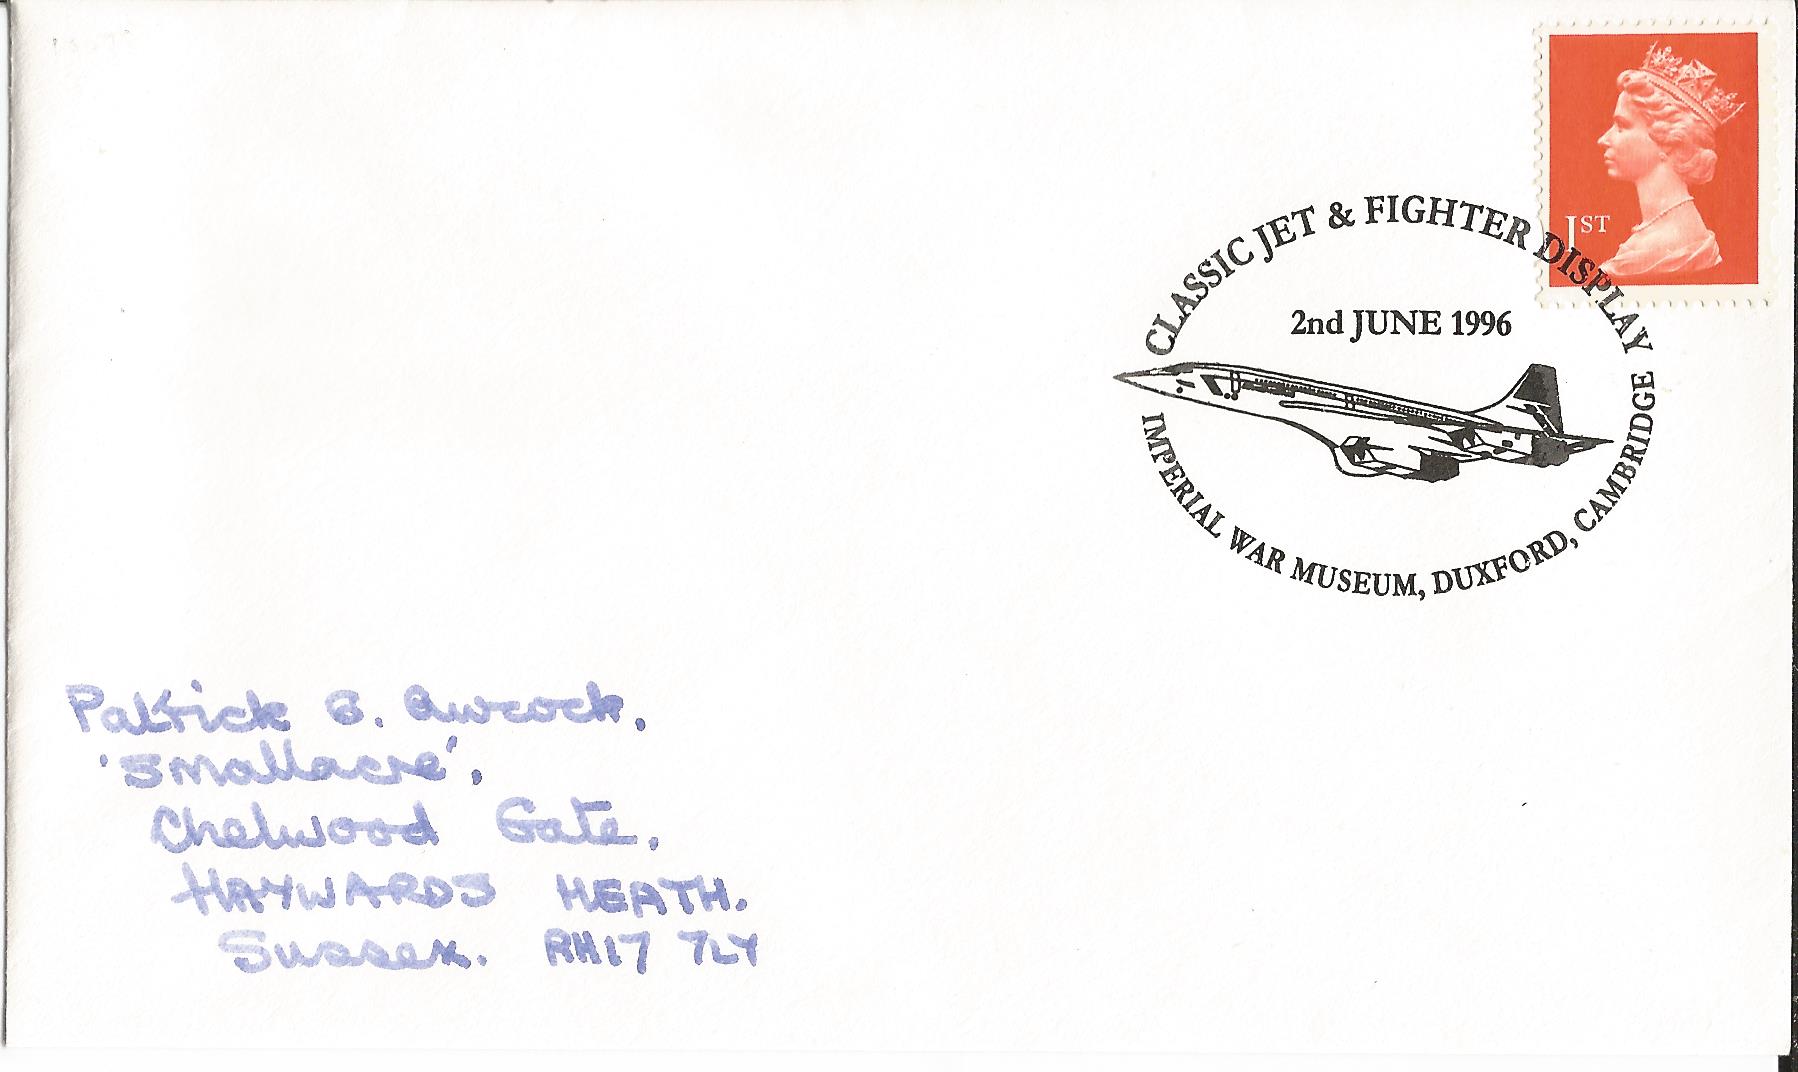 1ST
CLASSIC JET & FIGHTER DISPLAY
2nd JUNE 1996
IMPERIAL WAR MUSEUM, DUXFORD, CAMBRIDGE
Patrick G. Awcock.
'Smallacre'.
Chelwood Gate.
HAYWARDS HEATH.
Sussex. RH17 7LY